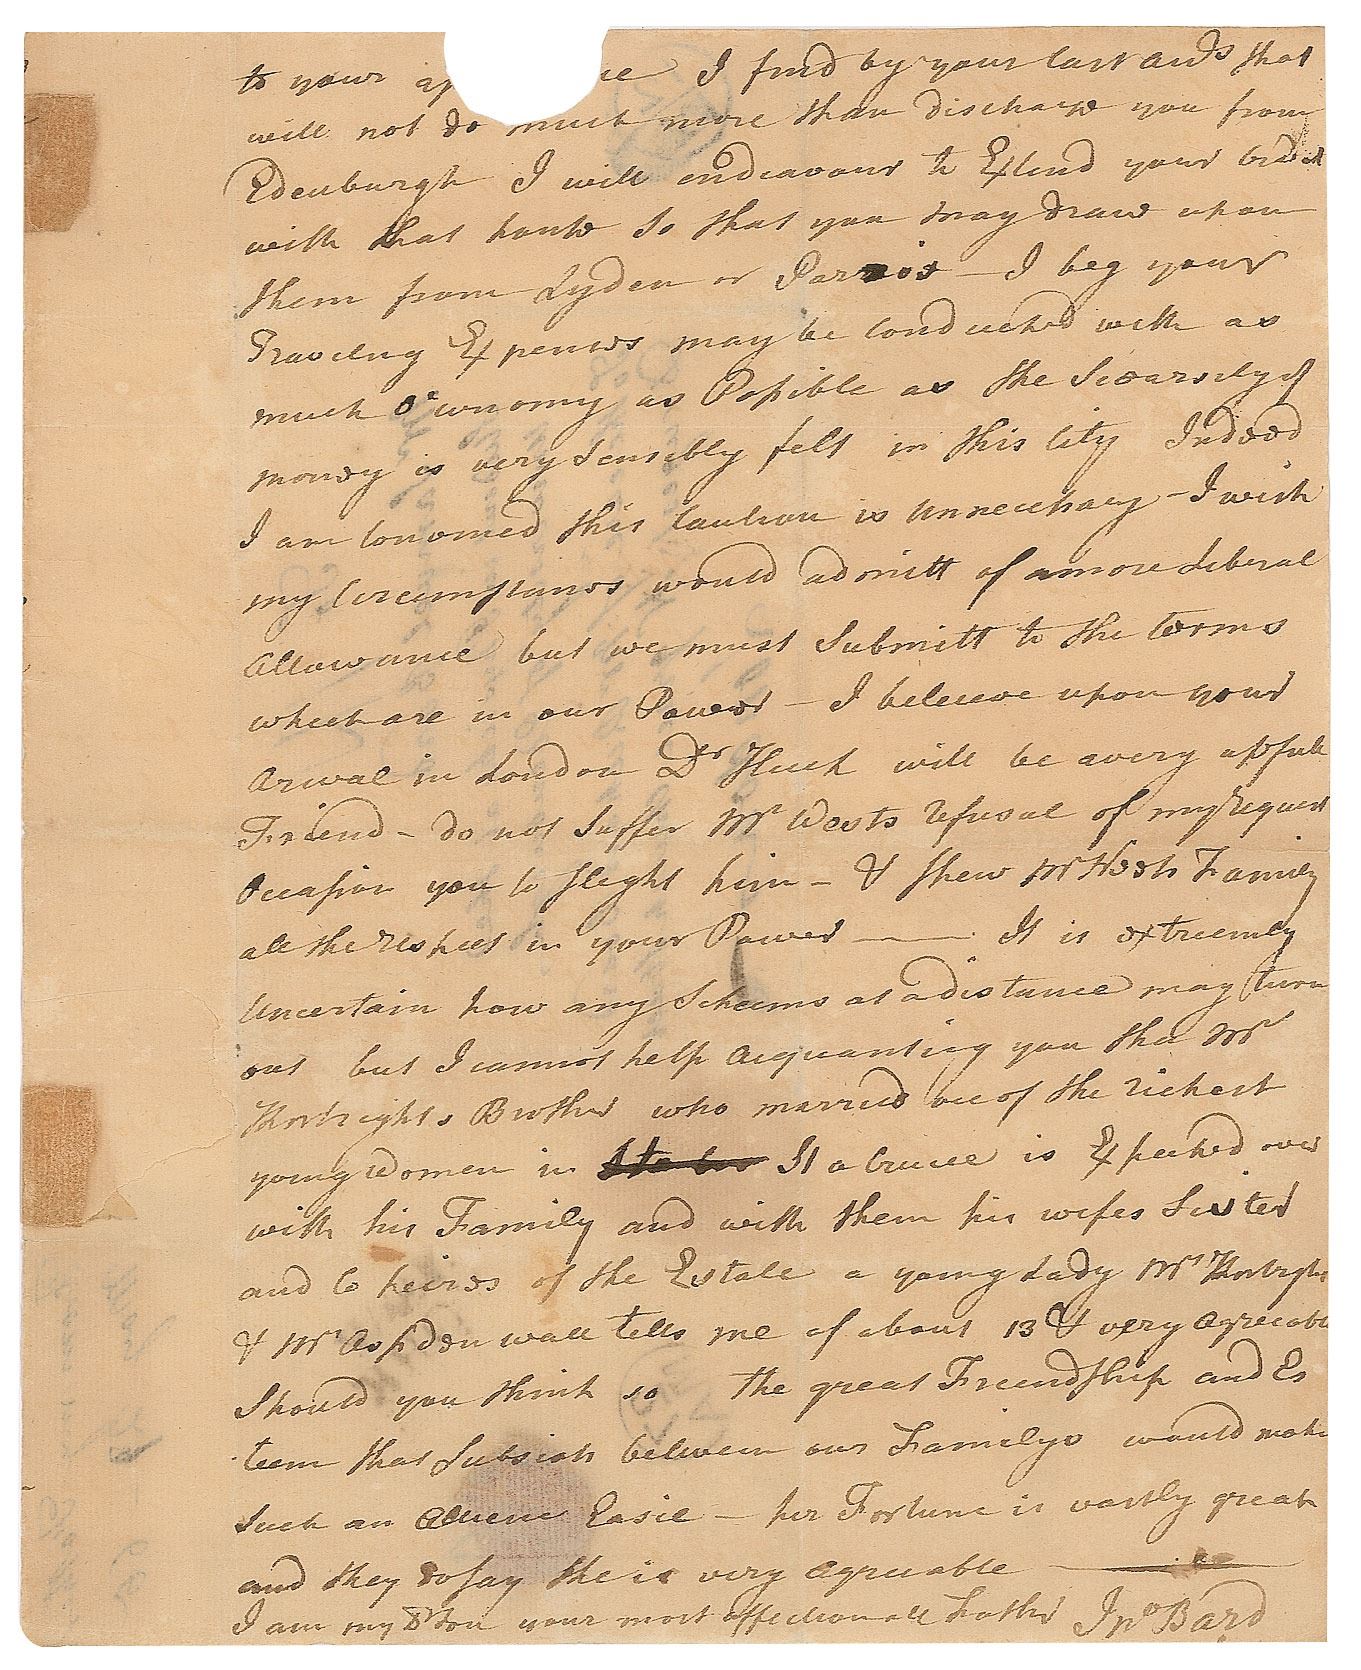 to your ue I find by your last aids that
will not do much more than discharge you from
Edenburgh I will endeavour to Extend your
with that house So that you may draw upon
them from Lyden or Parris — I beg your
Traveling Expences may be Conducted with as
much Oeconomy as Possible as the Scearsity of
money is very Sensibly felt in this City Indeed
I am this Caution is Unnecessary — I wish
my Circumstances would admitt of a more Liberal
Allowance but we must Submitt to the terms
which are in our Power — I beleeve upon your
Arival in London Dr Huck will be a very usefull
Friend — do not Suffer Mr Wests refusal of my request
Occasion you to slight him — & shew Mr Wests Family
all the respect in your Power —— It is extreemly
Uncertain how any Scheems at a distance may turn
out but I cannot help Acquanting you that Mr
Brother who married one of the richest
young Women in St a Cruce is Expected over
with his Family and with them his wifes Sister
and Co heires of the Estate a young Lady Mrs
& Mr Aspdenwall tells me of about 13 & very Agreeable
Should you think so the great Freendship and Es
teem that Subsists between our Familys would make
Such an Easie — her Fortune is vastly great
and they do say she is very Agreeable ——
I am my Dr Son your most affectionate Father Jno Bard